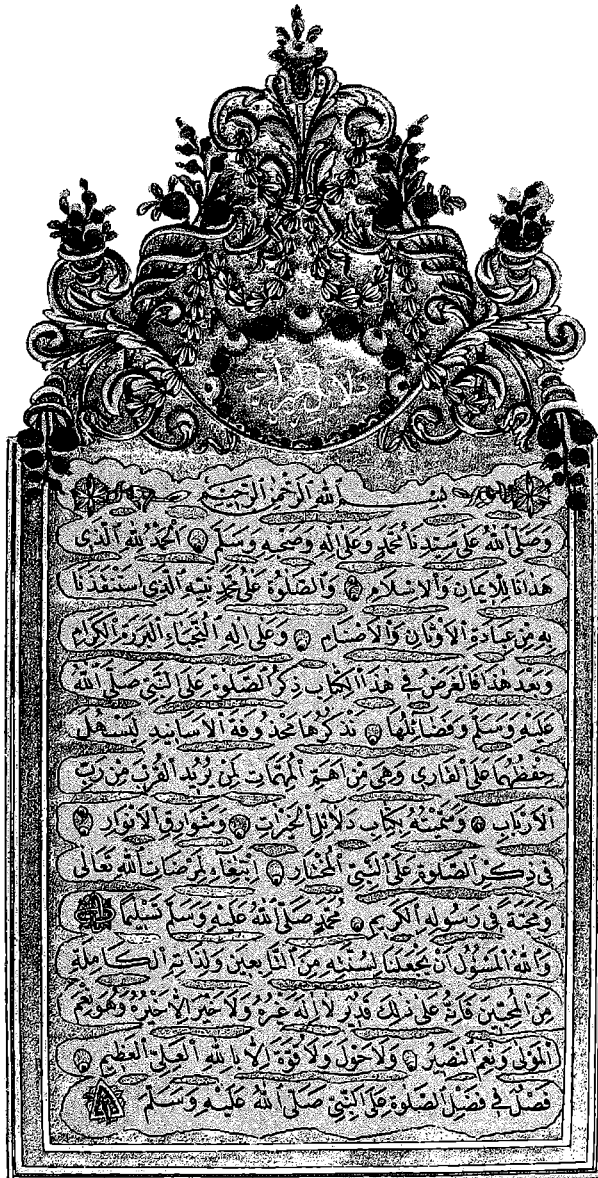 دلائل الخيرات
بِسْمِ اللهِ الرَّحْمٰنِ الرَّحِيمِ
وَصَلَّى اللهُ عَلَى سَيِّدِنَا مُحَمَّدٍ وَعَلَى اٰلِهِ وَصَحْبِهِ وَسَلَّمَ اَلْحَمْدُ لِلّٰهِ الَّذِى
هَدَانَا لِلْاِيمَانِ وَالْاِسْلَامِ وَالصَّلٰوةُ عَلَى مُحَمَّدٍ نَبِيِّهِ الَّذِى اسْتَنْقَذَنَا
بِهِ مِنْ عِبَادَةِ الْاَوْثَانِ وَالْاَصْنَامِ وَعَلَى اٰلِهِ النُّجَبَاءِ الْبَرَرَةِ الْكِرَامِ
وَبَعْدَ هٰذَا فَالْغَرَضُ فِى هٰذَا الْكِتَابِ ذِكْرُ الصَّلٰوةِ عَلَى النَّبِىِّ صَلَّى اللهُ
عَلَيْهِ وَسَلَّمَ وَفَضَائِلُهَا نَذْكُرُهَا مَحْذُوفَةَ الْاَسَانِيدِ لِيَسْهُلَ
حِفْظُهَا عَلَى الْقَارِى وَهِىَ مِنْ اَهَمِّ الْمُهِمَّاتِ لِمَنْ يُرِيدُ الْقُرْبَ مِنْ رَبِّ
الْاَرْبَابِ وَسَمَّيْتُهُ بِكِتَابِ دَلَائِلِ الْخَيْرَاتِ وَشَوَارِقِ الْاَنْوَارِ
فِى ذِكْرِ الصَّلٰوةِ عَلَى النَّبِىِّ الْمُخْتَارِ اِبْتِغَاءً لِمَرْضَاتِ اللهِ تَعَالَى
وَمَحَبَّةً فِى رَسُولِهِ الْكَرِيمِ مُحَمَّدٍ صَلَّى اللهُ عَلَيْهِ وَسَلَّمَ تَسْلِيمًا
وَاللهُ الْمَسْؤُلُ اَنْ يَجْعَلَنَا لِسُنَّتِهِ مِنَ التَّابِعِينَ وَلِذَاتِهِ الْكَامِلَةِ
مِنَ الْمُحِبِّينَ فَاِنَّهُ عَلَى ذٰلِكَ قَدِيرٌ لَا اِلٰهَ غَيْرُهُ وَلَا خَيْرَ اِلَّا خَيْرُهُ وَهُوَ نِعْمَ
الْمَوْلٰى وَنِعْمَ النَّصِيرُ وَلَا حَوْلَ وَلَا قُوَّةَ اِلَّا بِاللهِ الْعَلِىِّ الْعَظِيمِ
فَصْلٌ فِى فَضْلِ الصَّلٰوةِ عَلَى النَّبِىِّ صَلَّى اللهُ عَلَيْهِ وَسَلَّمَ